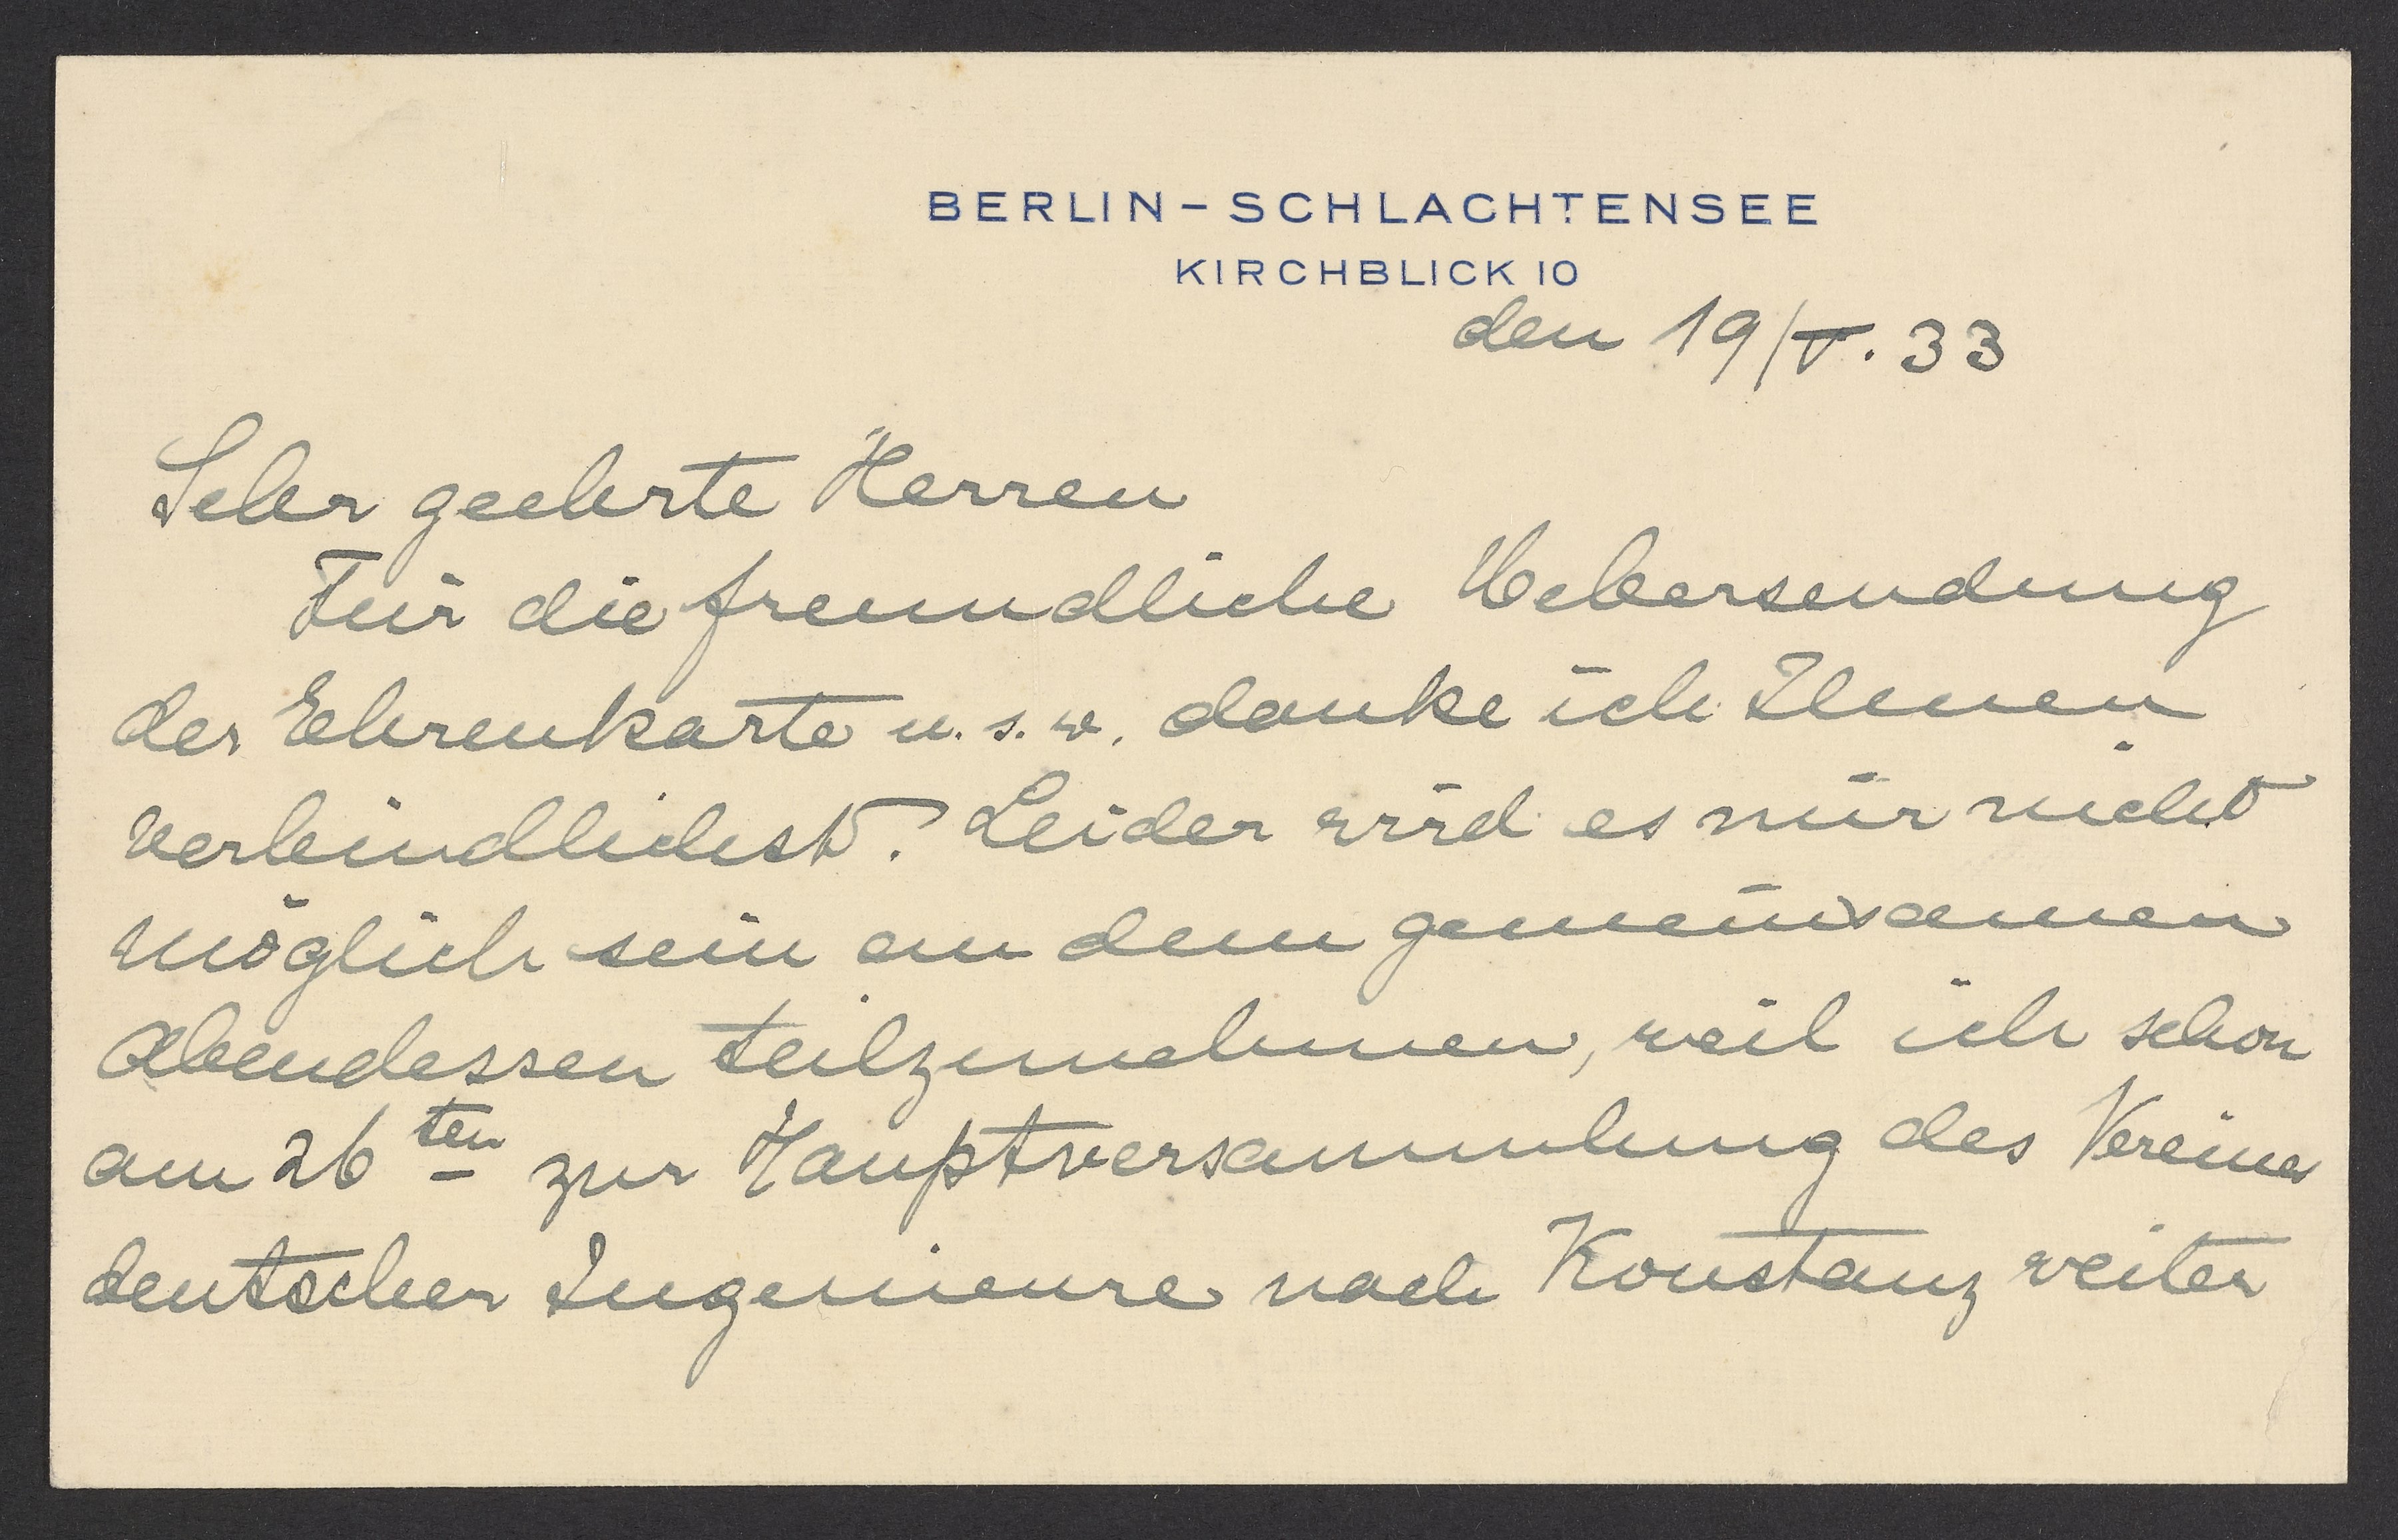 BERLIN-SCHLACHTENSEE
KIRCHBLICK 10
den 19/V. 33
Sehr geehrte Herren
Für die freundliche Uebersendung
der Ehrenkarte u. s. w. danke ich Ihnen
verbindlichst. Leider wird es mir nicht
möglich sein an dem gemeinsamen
Abendessen teilzunehmen, weil ich schon
am 26ten zur Hauptversammlung des Vereines
deutscher Ingenieure nach Konstanz weiter